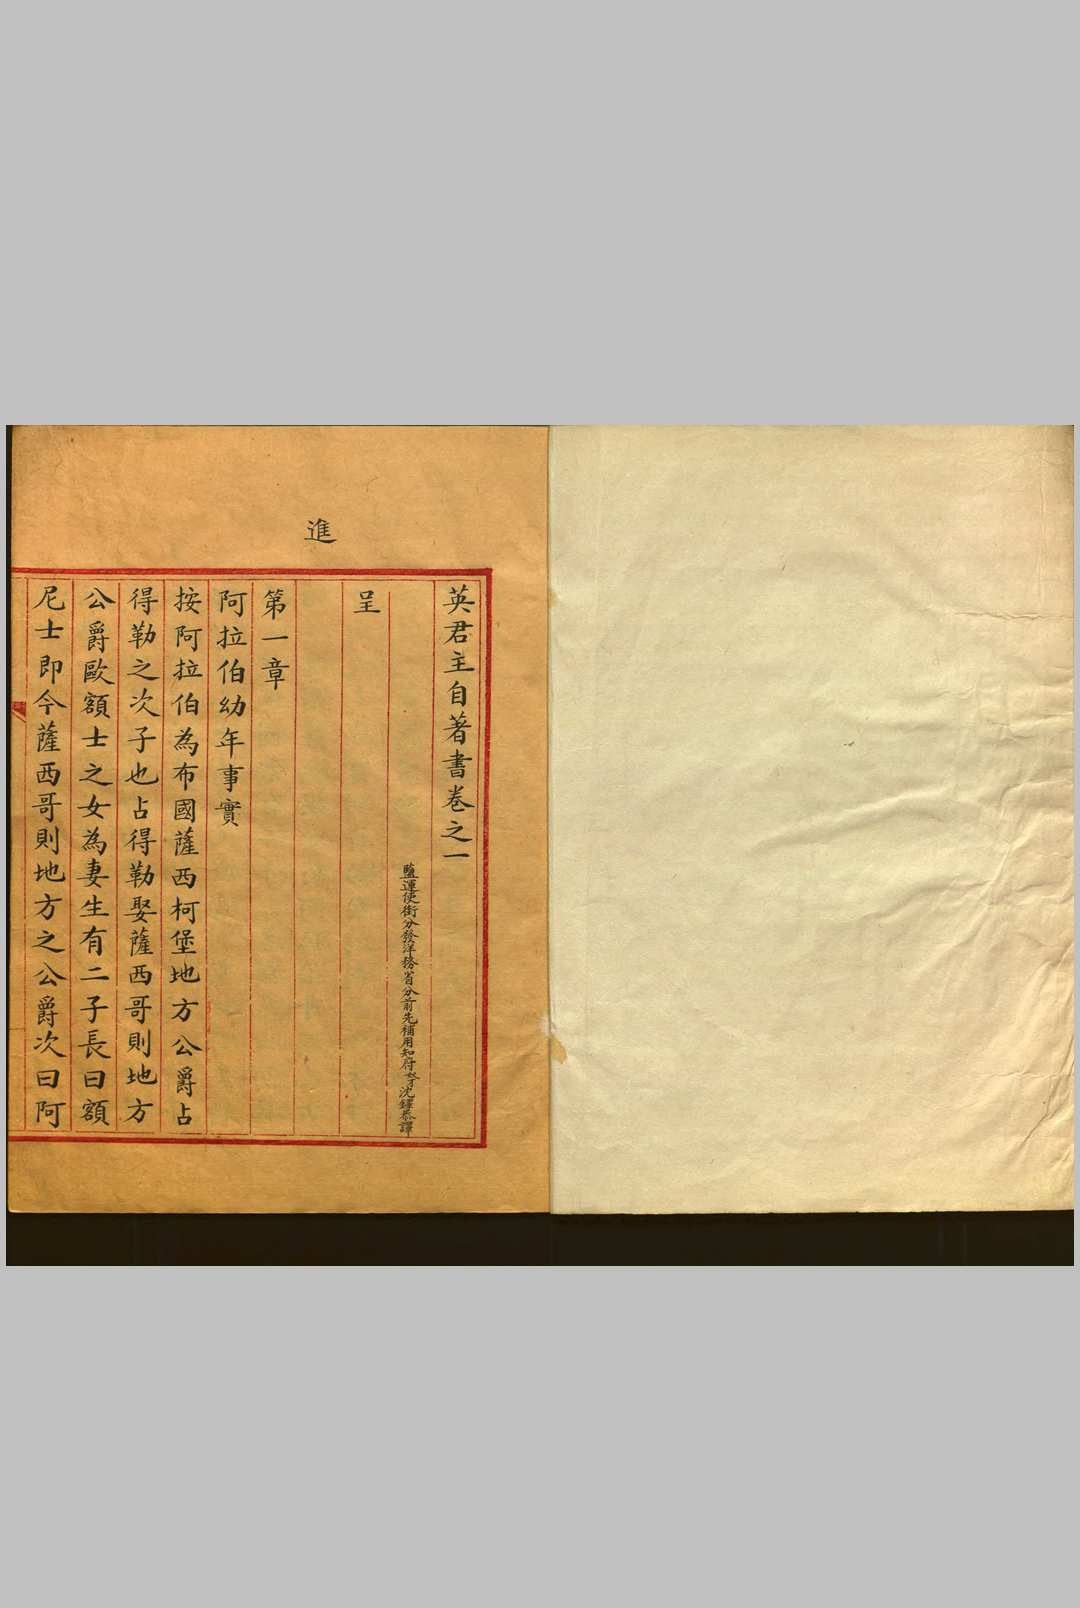 英君主自著書卷之一
鹽運使銜分發洋務省分前先補用知府奴才沈鐸恭譯
呈
進
第一章
阿拉伯幼年事實
按阿拉伯為布國薩西柯堡地方公爵占
得勒之次子也占得勒娶薩西哥則地方
公爵歐額士之女為妻生有二子長曰額
尼士即今薩西哥則地方之公爵次曰阿